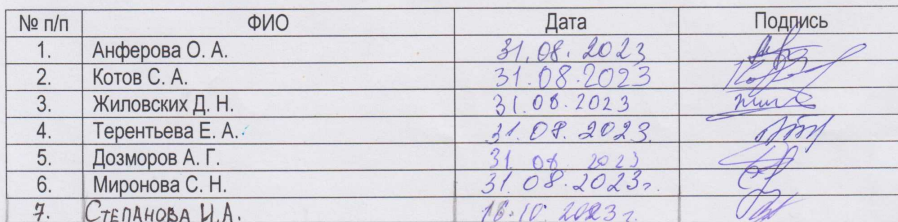 № п/п ФИО Дата Подпись
1. Анферова О. А. 31.08.2023
2. Котов С. А. 31.08.2023
3. Жиловских Д. Н. 31.08.2023
4. Терентьева Е. А. 31.08.2023
5. Дозморов А. Г. 31 08 2023
6. Миронова С. Н. 31.08.2023г.
7. СТЕПАНОВА И.А. 16.10 2023г.